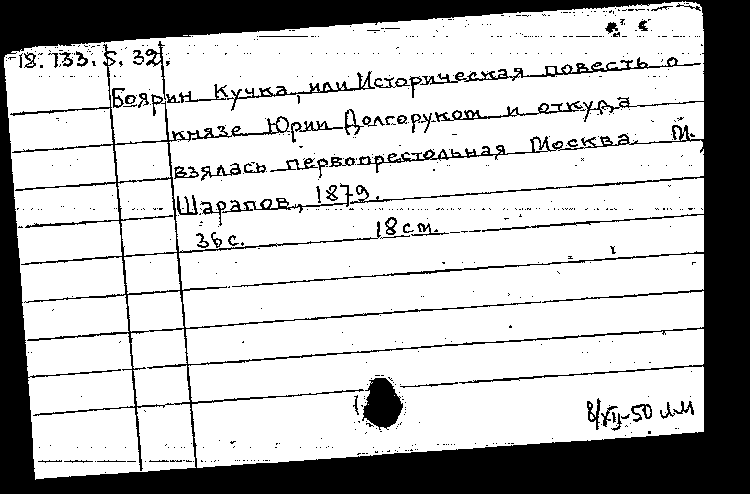 18. 133. 5. 32.
Боярин Кучка, или Историческая повесть о
князе Юрии Долгоруком и откуда
взялась первопрестольная Москва. М.,
Шарапов, 1879.
36 с. 18 см.
8/XII-50